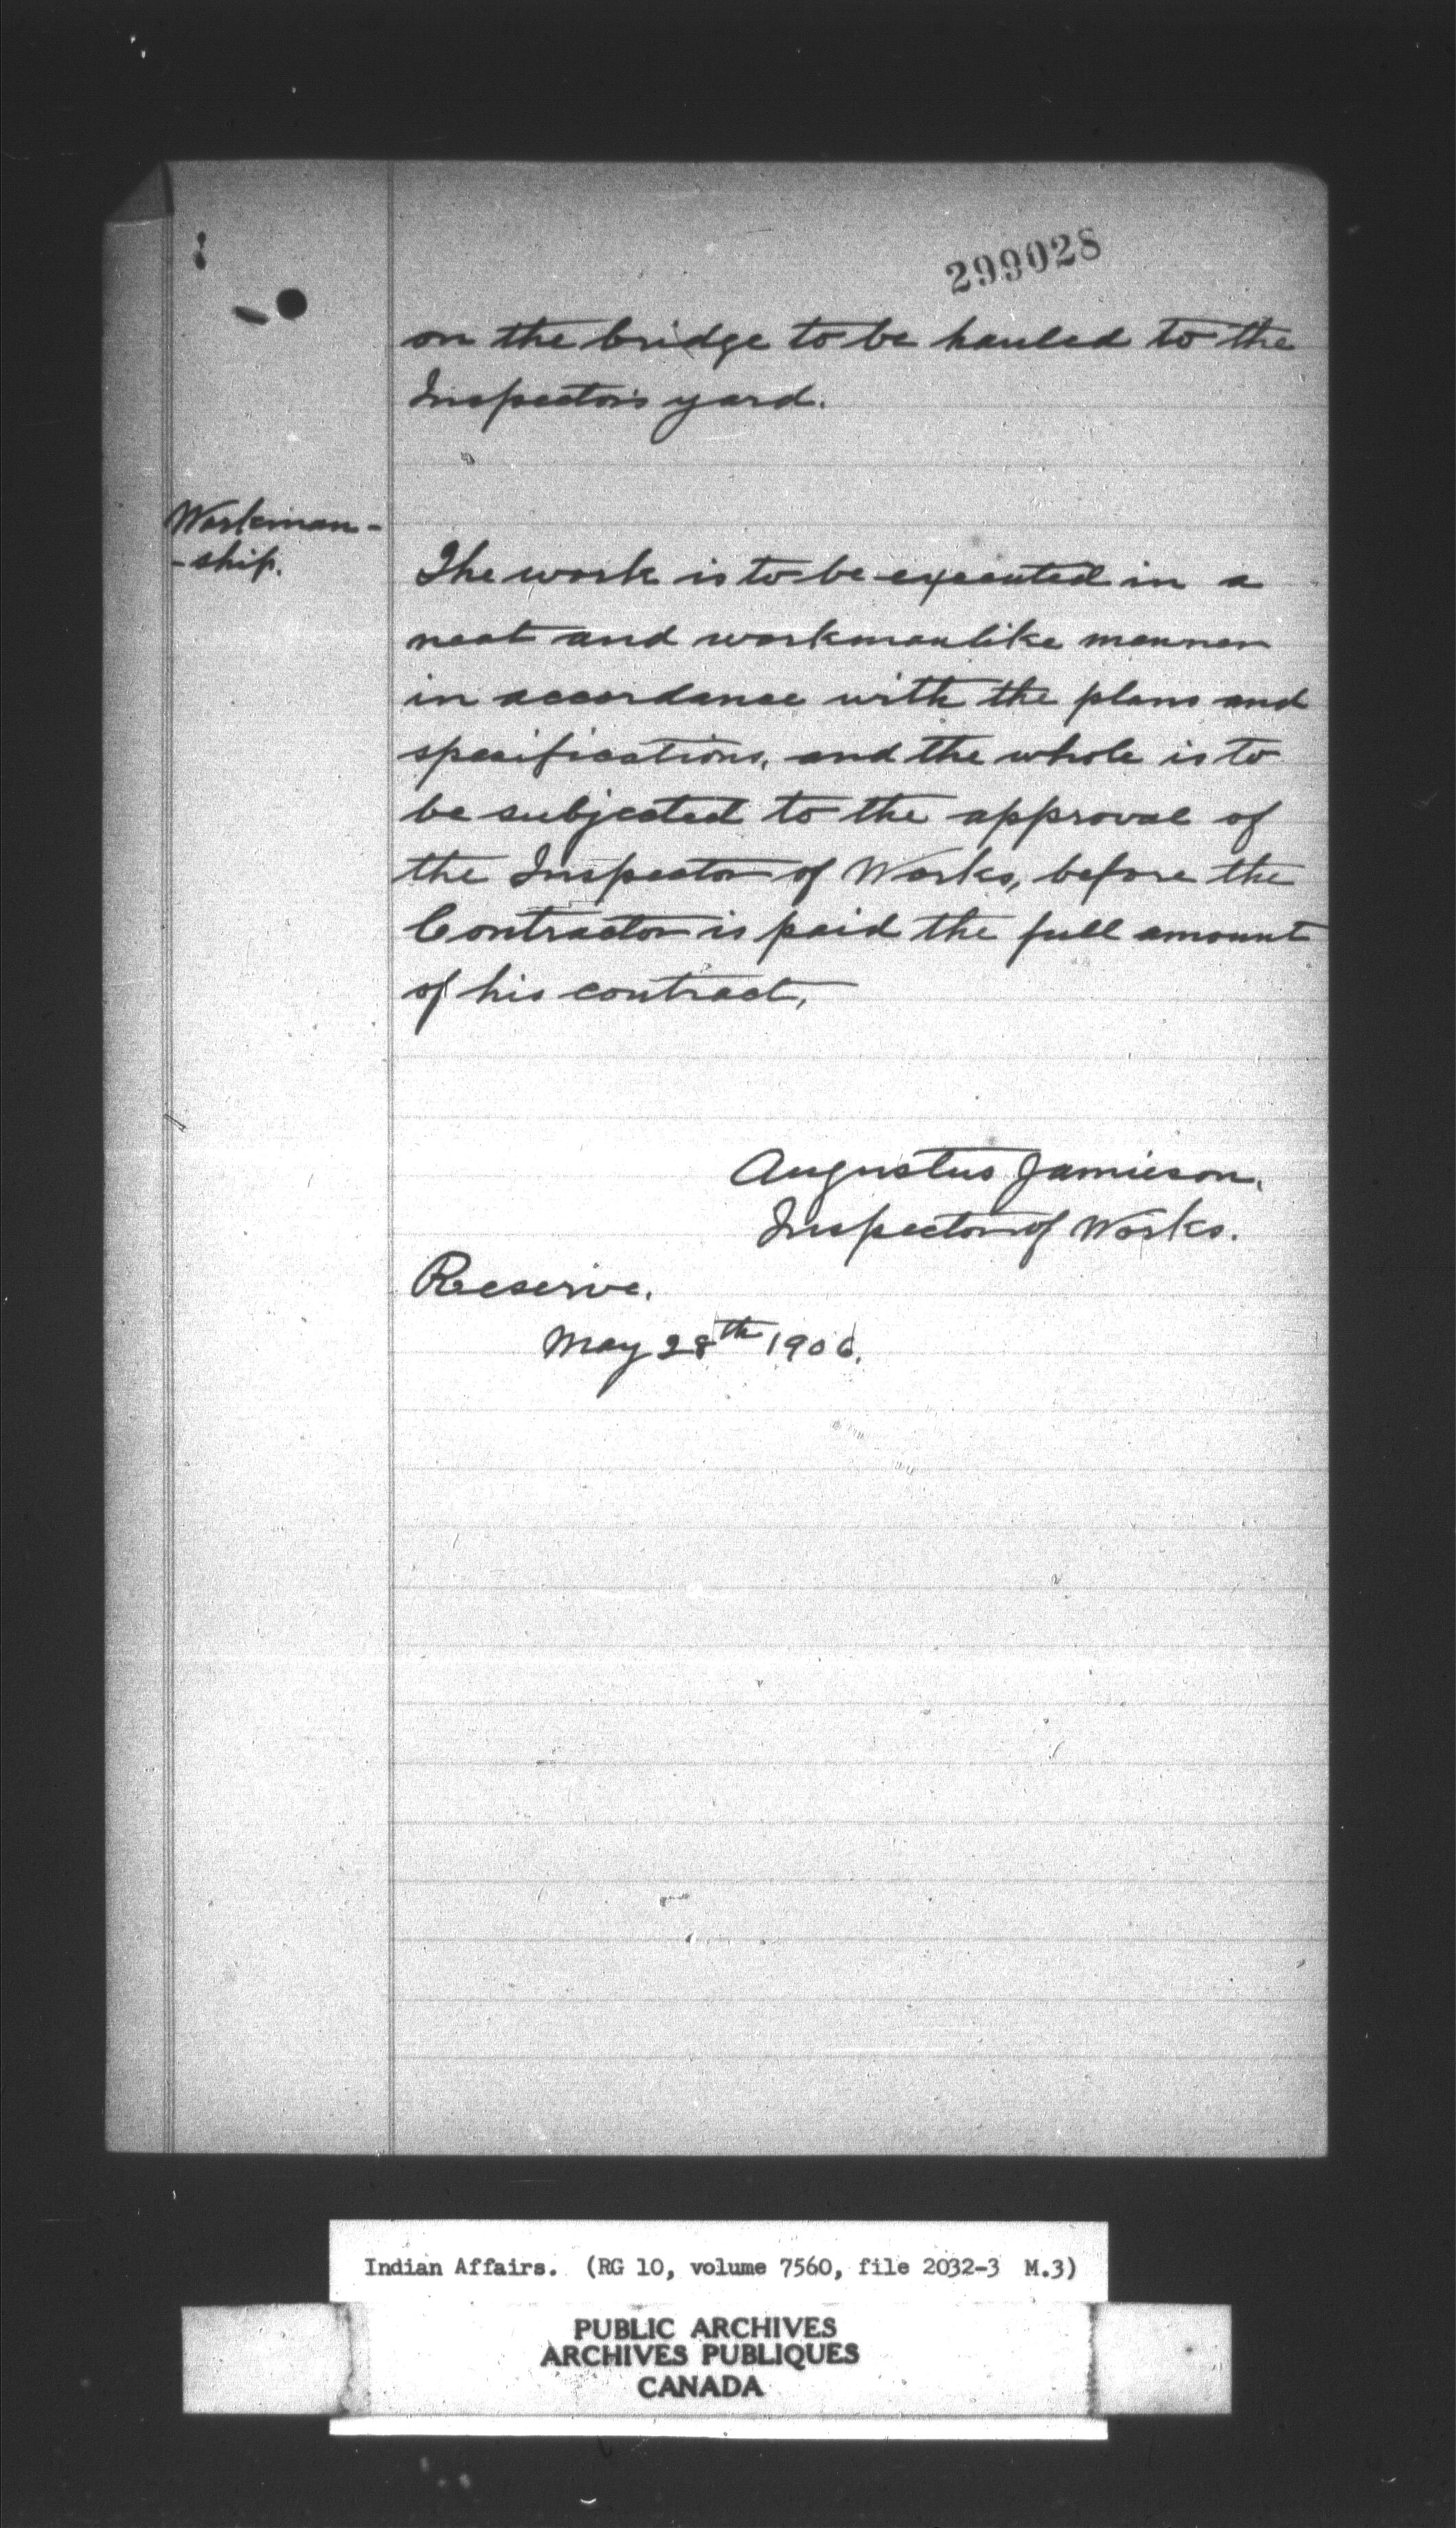 299028
on the bridge to be hauled to the
Inspector's yard.
Workman-
-ship.
The work is to be executed in a
neat and workmanlike manner
in accordance with the plans and
specifications, and the whole is to
be subjected to the approval of
the Inspector of Works, before the
Contractor is paid the full amount
of his contract,
Augustus Jamieson.
Inspector of Works.
Reserve.
May 28th 1906.
Indian Affairs. (RG 10, volume 7560, file 2032-3 M.3)
PUBLIC ARCHIVES
ARCHIVES PUBLIQUES
CANADA